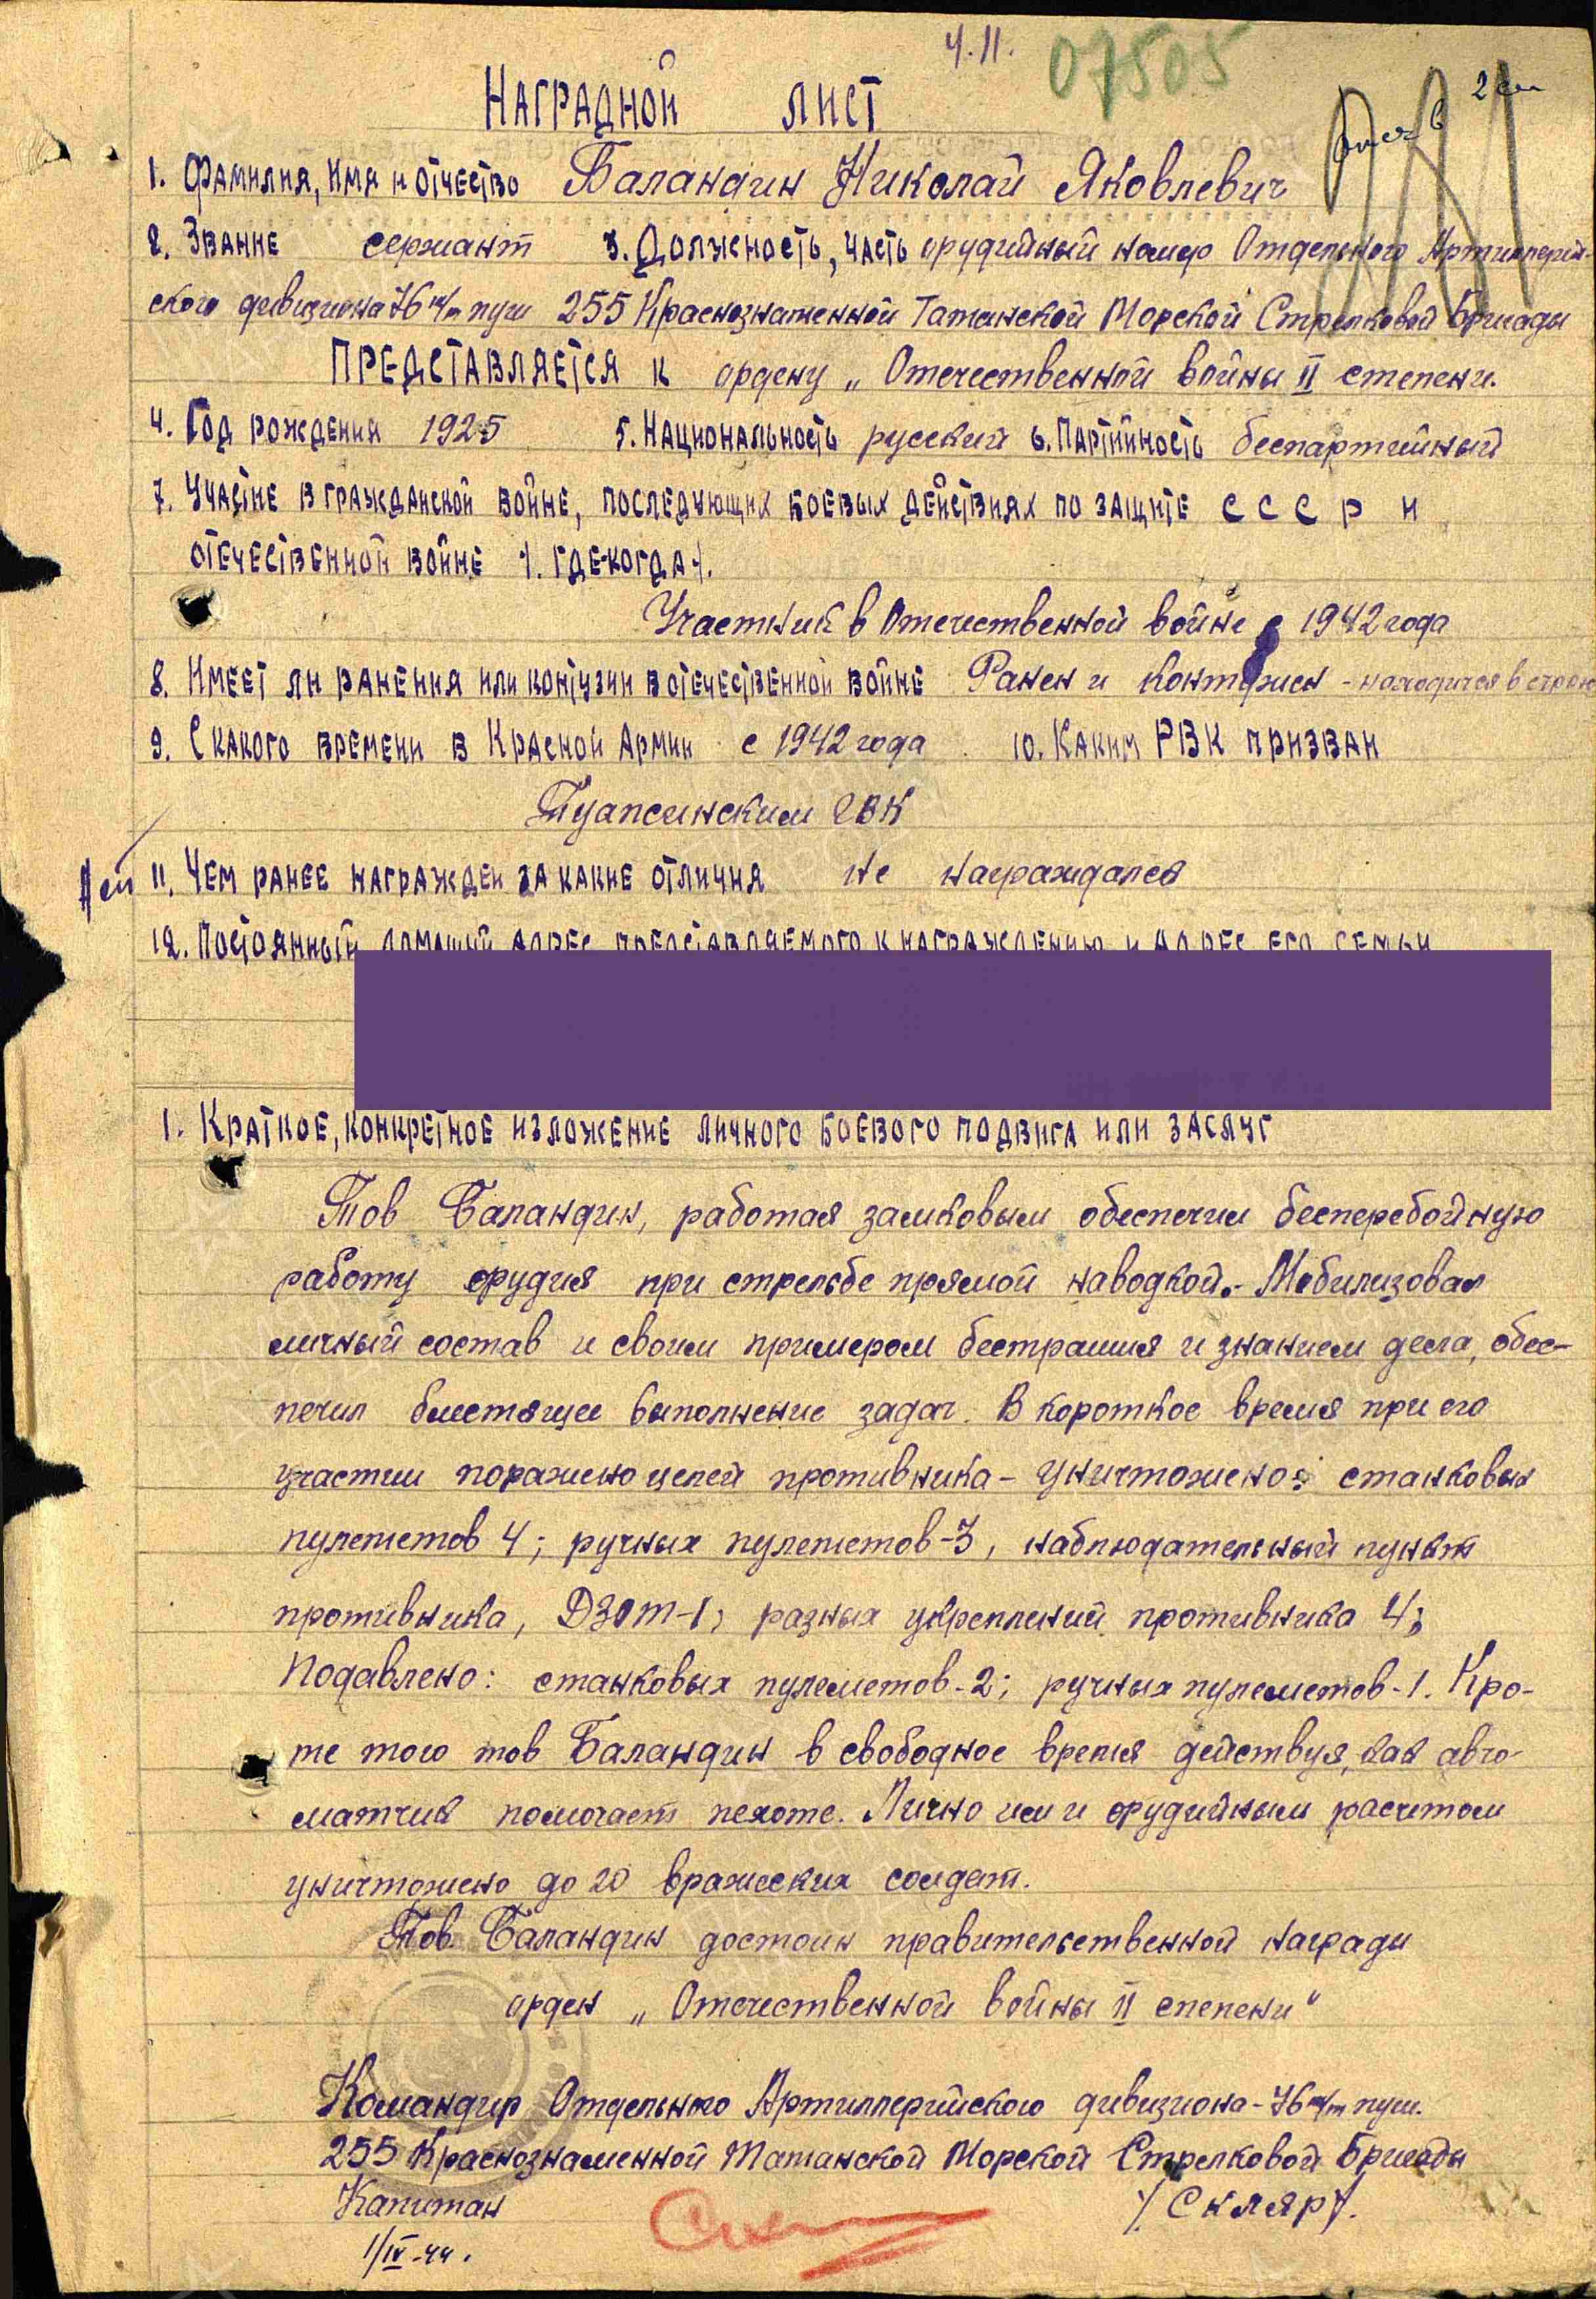 Ч.II. 07505
2 см
Наградной лист
1. Фамилия, имя и отчество Баландин Николай Яковлевич
2. Звание сержант 3. Должность, часть орудийный номер Отдельного Артиллерий-
ского дивизиона 76 м/м пуш 255 Краснознаменной Таманской Морской Стрелковой Бригады
Представляется к ордену „Отечественной войны II степени.
4. Год рождения 1925 5. Национальность русский 6. Партийность беспартийный
7. Участие в гражданской войне, последующих боевых действиях по защите СССР и
отечественной войне /. где-когда/.
Участник в Отечественной войне с 1942 года
8. Имеет ли ранения или контузии в отечественной войне Ранен и контужен - находится в строю
9. С какого времени в Красной Армии с 1942 года 10. Каким РВК призван
Туапсинским ГВК
11. Чем ранее награжден за какие отличия не награждался
12. Постоянный домашний адрес представляемого к награждению и адрес его семьи
1. Краткое, конкретное изложение личного боевого подвига или заслуг
Тов Баландин, работая замковым обеспечил бесперебойную
работу орудия при стрельбе прямой наводкой. Мобилизовал
личный состав и своим примером бестрашия и знанием дела, обес-
печил блестящее выполнение задач. В короткое время при его
участии поражено целей противника - уничтожено: станковых
пулеметов 4; ручных пулеметов-3, наблюдательный пункт
противника, ДЗОТ-1; разных укреплений противника 4;
Подавлено: станковых пулеметов-2; ручных пулеметов-1. Кро-
ме того тов Баландин в свободное время действуя, как авто-
матчик помогает пехоте. Лично им и орудийным расчетом
уничтожено до 20 вражеских солдат.
Тов. Баландин достоин правительственной награды
орден „Отечественной войны II степени"
Командир Отдельного Артиллерийского дивизиона-76 м/м пуш.
255 Краснознаменной Таманской Морской Стрелковой Бригады
Капитан /Скляр/.
1/IV-44.